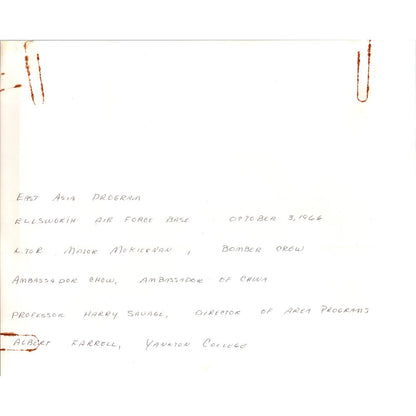 EAST ASIA PROGRAM
ELLSWORTH AIR FORCE BASE OCTOBER 3, 1966
L TO R MAJOR MCKIERNAN, BOMBER CREW
AMBASSADOR CHOW, AMBASSADOR OF CHINA
PROFESSOR HARRY SAVAGE, DIRECTOR OF AREA PROGRAMS
ALBERT FARRELL, YANKTON COLLEGE